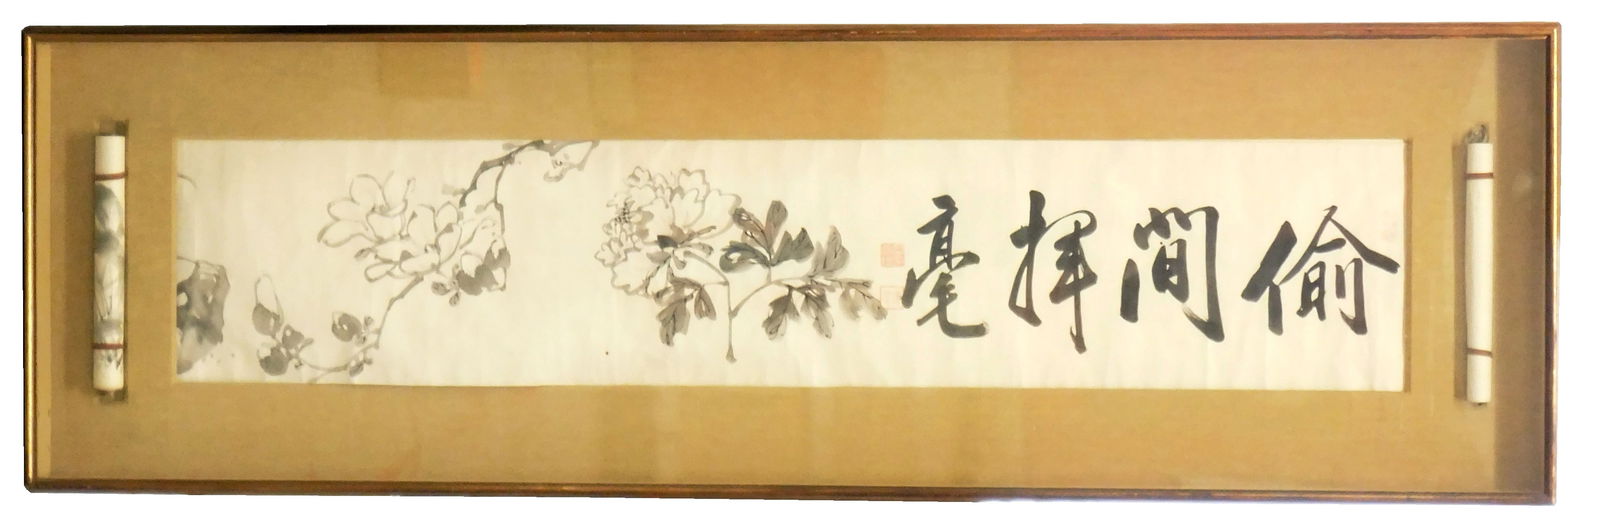 偷閒揮毫